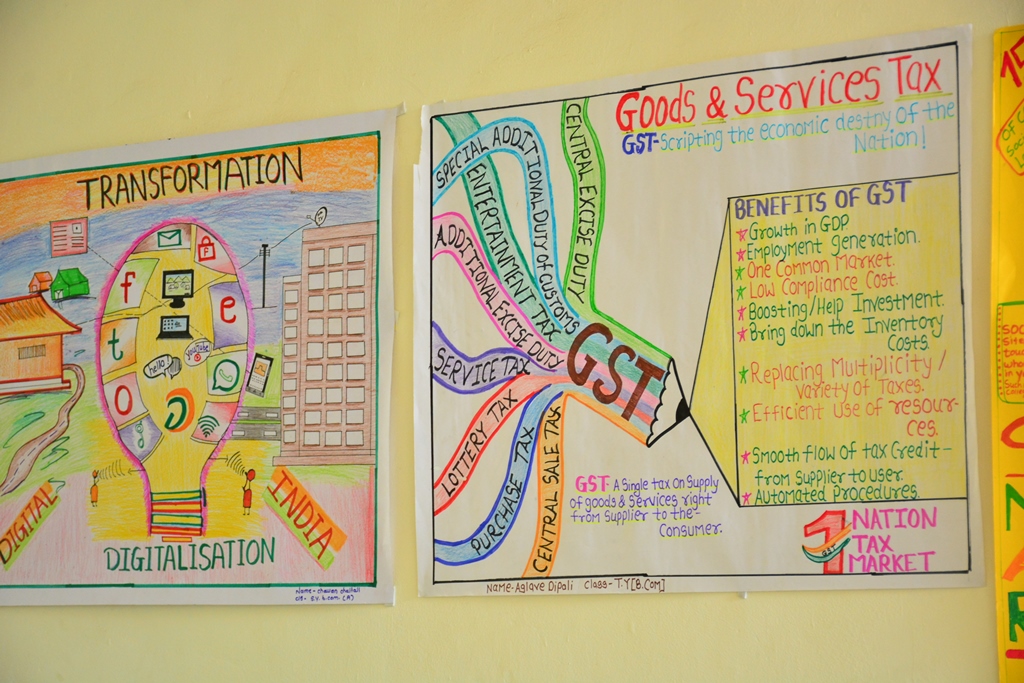 TRANSFORMATION
f
e
t
hello
youtube
O
DIGITAL
INDIA
DIGITALISATION
Name - chavan shefali
S.Y. b.com. [A]
GOODS & Services Tax
GST-Scripting the economic destny of the
Nation!
CENTRAL EXCISE DUTY
SPECIAL ADDITIONAL DUTY OF CUSTOMS
ENTERTAINMENT TAX
ADDITIONAL EXCISE DUTY
SERVICE TAX
LOTTERY TAX
PURCHASE TAX
CENTRAL SALE TAX
GST
BENEFITS OF GST
Growth in GDP
Employment generation.
One Common Market.
Low Compliance Cost.
Boosting/Help Investment.
Bring down the Inventory
Costs.
Replacing Multiplicity /
variety of Taxes.
Efficient use of resour-
ces.
Smooth flow of tax Credit-
from Supplier to user
Automated Procedures.
GST- A Single tax on Supply
of goods & Services right
from Supplier to the
Consumer.
1 NATION
TAX
MARKET
GST
Name-Aglave Dipali Class-T.Y[B.Com]